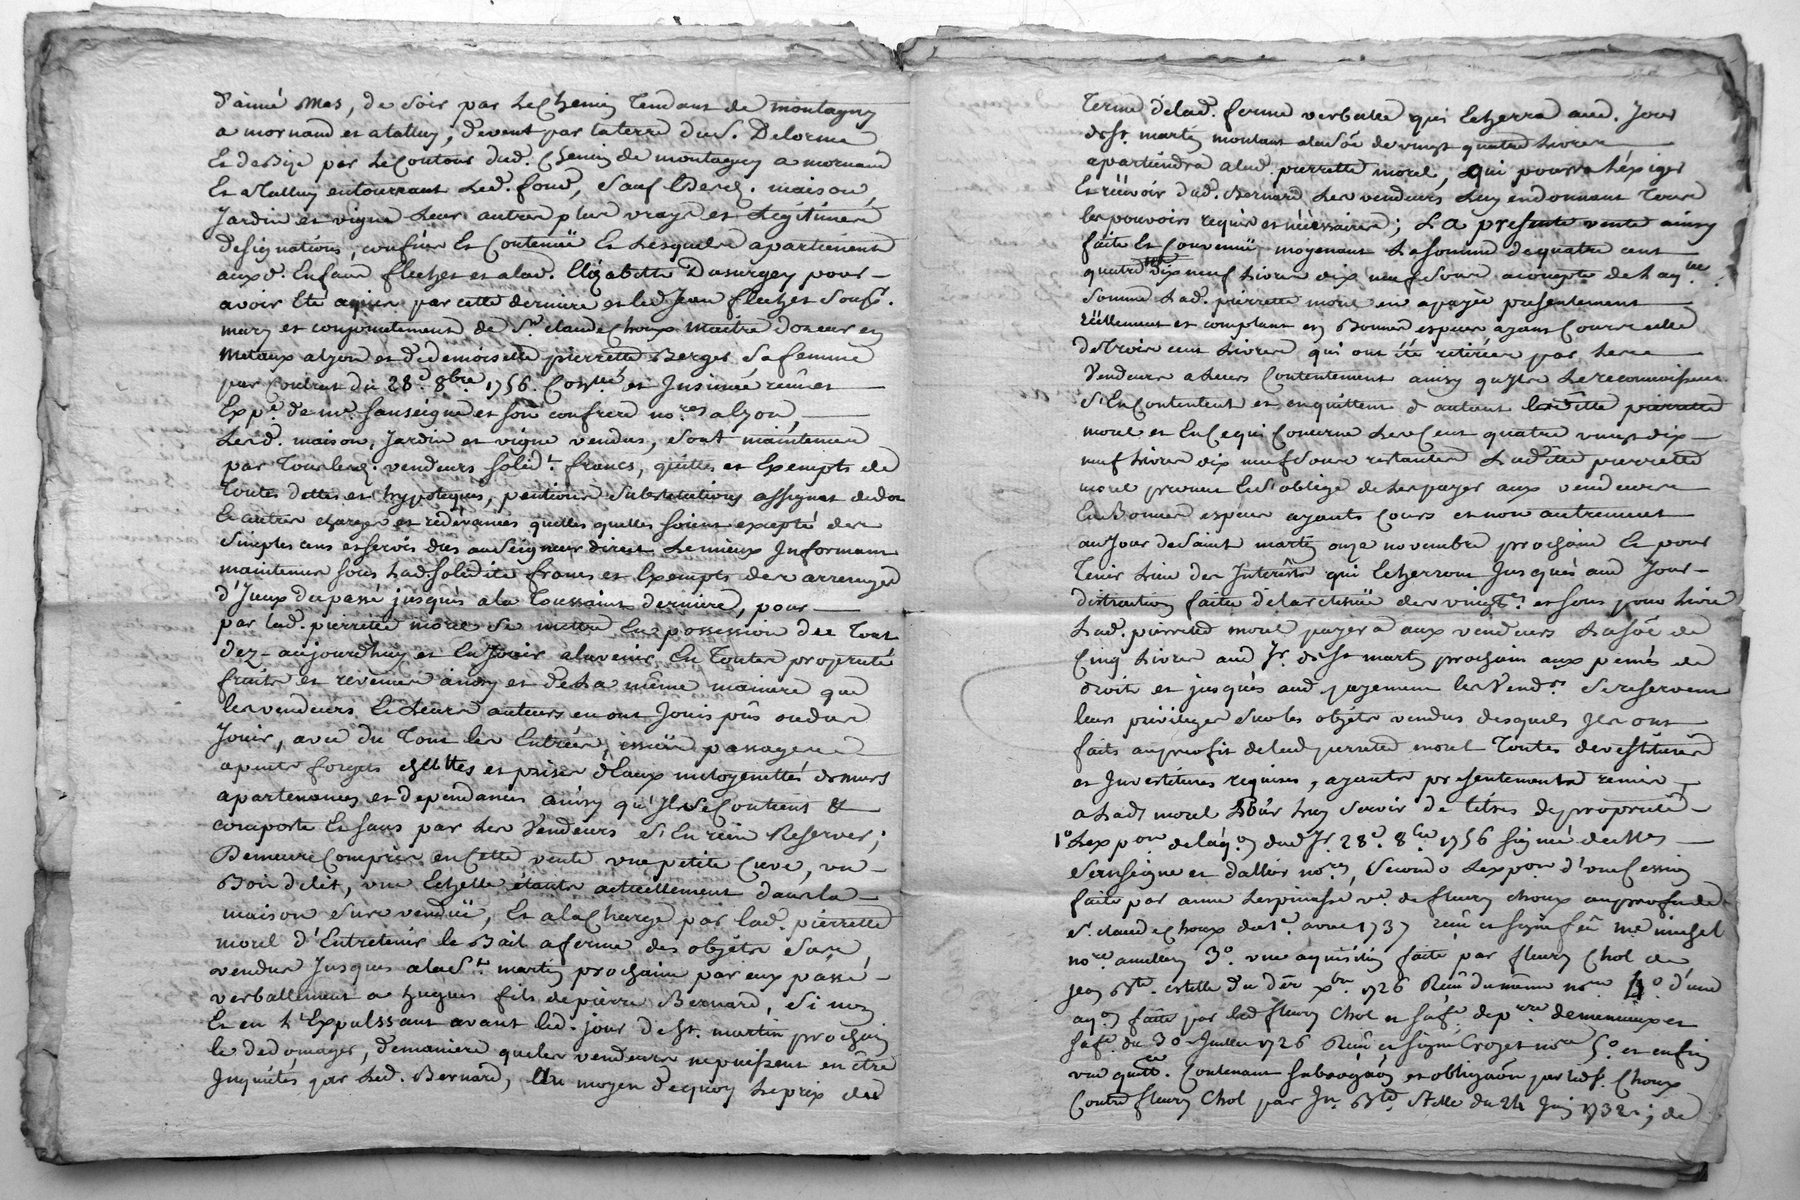 d'aimé Mas, de Soir par Le Chemin Tendant de montagny
a mornand et a talluy, devent par la terre dud. S. Delorme
Et de Bize par Le Contour dud. Chemin de montagny a mornand
Et a Talluy entourrant Led. fond, Sauf Desd. maison,
Jardin et vigne Leurs autres plus vrayes et Legitimes
designations, confins Et Contenüe Et Lesquels apartienent
auxd. Enfans flechet et a lad. Elizabette Dusurgey pour-
avoir Eté aquis par cette derniere et led. Jean flechet Son
mary et conjointement de Sr. claude Choux maitre doreur en
Metaux a lyon et de demoiselle pierrette Berger Sa femme
par Contrat du 28e. 8bre. 1756. et Insinué
Expé. de me. Sanseigne et Son confrere nores. a lyon,
Lesd. maison, Jardin et vigne vendus, Sont maintenus
par Tous lesd. vendeurs Solidt. francs, quittes et Exempts de
Toutes dettes et hypoteques, pentions Substitutions assignat de dot
Et autres charges et redevances quelles quelles Soient excepté des
Simples cens et servis dus au Seigneur direct Le mieux Informant
maintenus Sous Lad. Solidité francs et Exempts des arrerages
d'Iceux du passé jusques a la Toussaint derniere, pour
par lad. pierrette morel Se mettre En possession de Tout
dez-aujourdhuy et En Jouir a lavenir En Toutes proprieté
fruits et revenus ainsy et de La même maniere que
les vendeurs Et Leurs auteurs en ont Jouis pû ou du
Jouir, avec du Tout les Entrées, issües passages
apents forgets Eguttes et prises d'Eaux mitoyenettés de murs
apartenances et dependances ainsy qu'Il Se Contient Et
comporte Et Sans par Les Vendeurs S'En rien Reserver;
Demeure Compris en Cette vente une petite Cuve, un
Bois de lit, une Echelle étants actuellement dans la
maison Sus vendüe, Et a la Charge par lad. pierrette
morel d'Entretenir le Bail a ferme des objéts Sus
vendus Jusques a la St. martin prochaine par eux passé
verballement a hugues fils de pierre Bernard, Si non
Et en L'Expulssant avant led. jour de St. martin prochain
le dedomager, de maniere que les vendeurs ne puissent en être
Inquiétés par Led. Bernard, Au moyen de quoy Le prix du
Terme de lad. ferme verballe qui Echerra aud. Jour
de St. martin montant a la Soē de vingt quatre Livres
apartiendra a lad. pierrette morel, qui pourra L'éxiger
Et reçevoir dud. Bernard, Les vendeurs Luy en donnant Tous
les pouvoirs requis et néçessaires; La presente vente ainsy
faite Et Convenüe moyenant La Somme de quatre cent
quatre vingt dix neuf Livres dix neuf Sous a compte de Laq.lle
Somme Lad. pierrette morel en a payée presentement
réellement et comptant en Bonnes especes ayant Cours celle
de trois cent Livres qui ont été retirées par Les
Vendeurs a Leurs Contentement ainsy qu'Ils Le reconnoissent
S'En Contentent et en quittent d'autant laditte pierrette
morel et En Ce qui Concerne Les Cent quatre vingt dix
neuf Livres dix neuf Sous restantes Laditte pierrette
morel promet Et S'oblige de Les payer aux vendeurs
En Bonnes especes ayants Cours et non autrement
au Jour de Saint martin onze novembre prochain Et pour
Tenir Lieu des Interêts qui Echerront Jusques aud. Jour-
distraction faite de la retenüe des vingt.e et Sous pour Livre
Lad. pierrette morel payera aux vendeurs La Soē de
Cinq Livres aud. Jr. de St martin prochain aux peines de
droits et jusques aud. payement les Vendrs. Se reservent
leurs privileges Sur les objéts vendus desquels Ils ont
faits au profit de lad. pierrette morel Toutes devestitures
et Investitures requises, ayants presentements remis
a Lad. morel Pour Luy Servir de titres de proprieté
1°. Lexpon. de laqon. dud. Jr. 28e. 8bre. 1756 Signé de Mes
Senseigne et Dallier nores, Secondo Lexpon. d'une Cession
faite par anne Lespinasse ve. de fleury Choux au profit de
Sr. claude Choux du 1er. avril 1737 reçu et signé feû me michel
nore. a millery 3°. une aquisition faite par fleury Chol de
jean Bte. estelle du der. xbre. 1726 Reçû du même nore 4°. d'une
aqon. faite par led. fleury Chol et Sa fe. de prre.
Safe. du 30 Juillet 1726 Reçû et signé Crozet nore. 5°. et enfin
une quitte. Contenant Subrogaōn et obligaōn par led. S. Choux
Contre fleury Chol par Jn. Bte. Stelle du 24 Juin 1732.; de